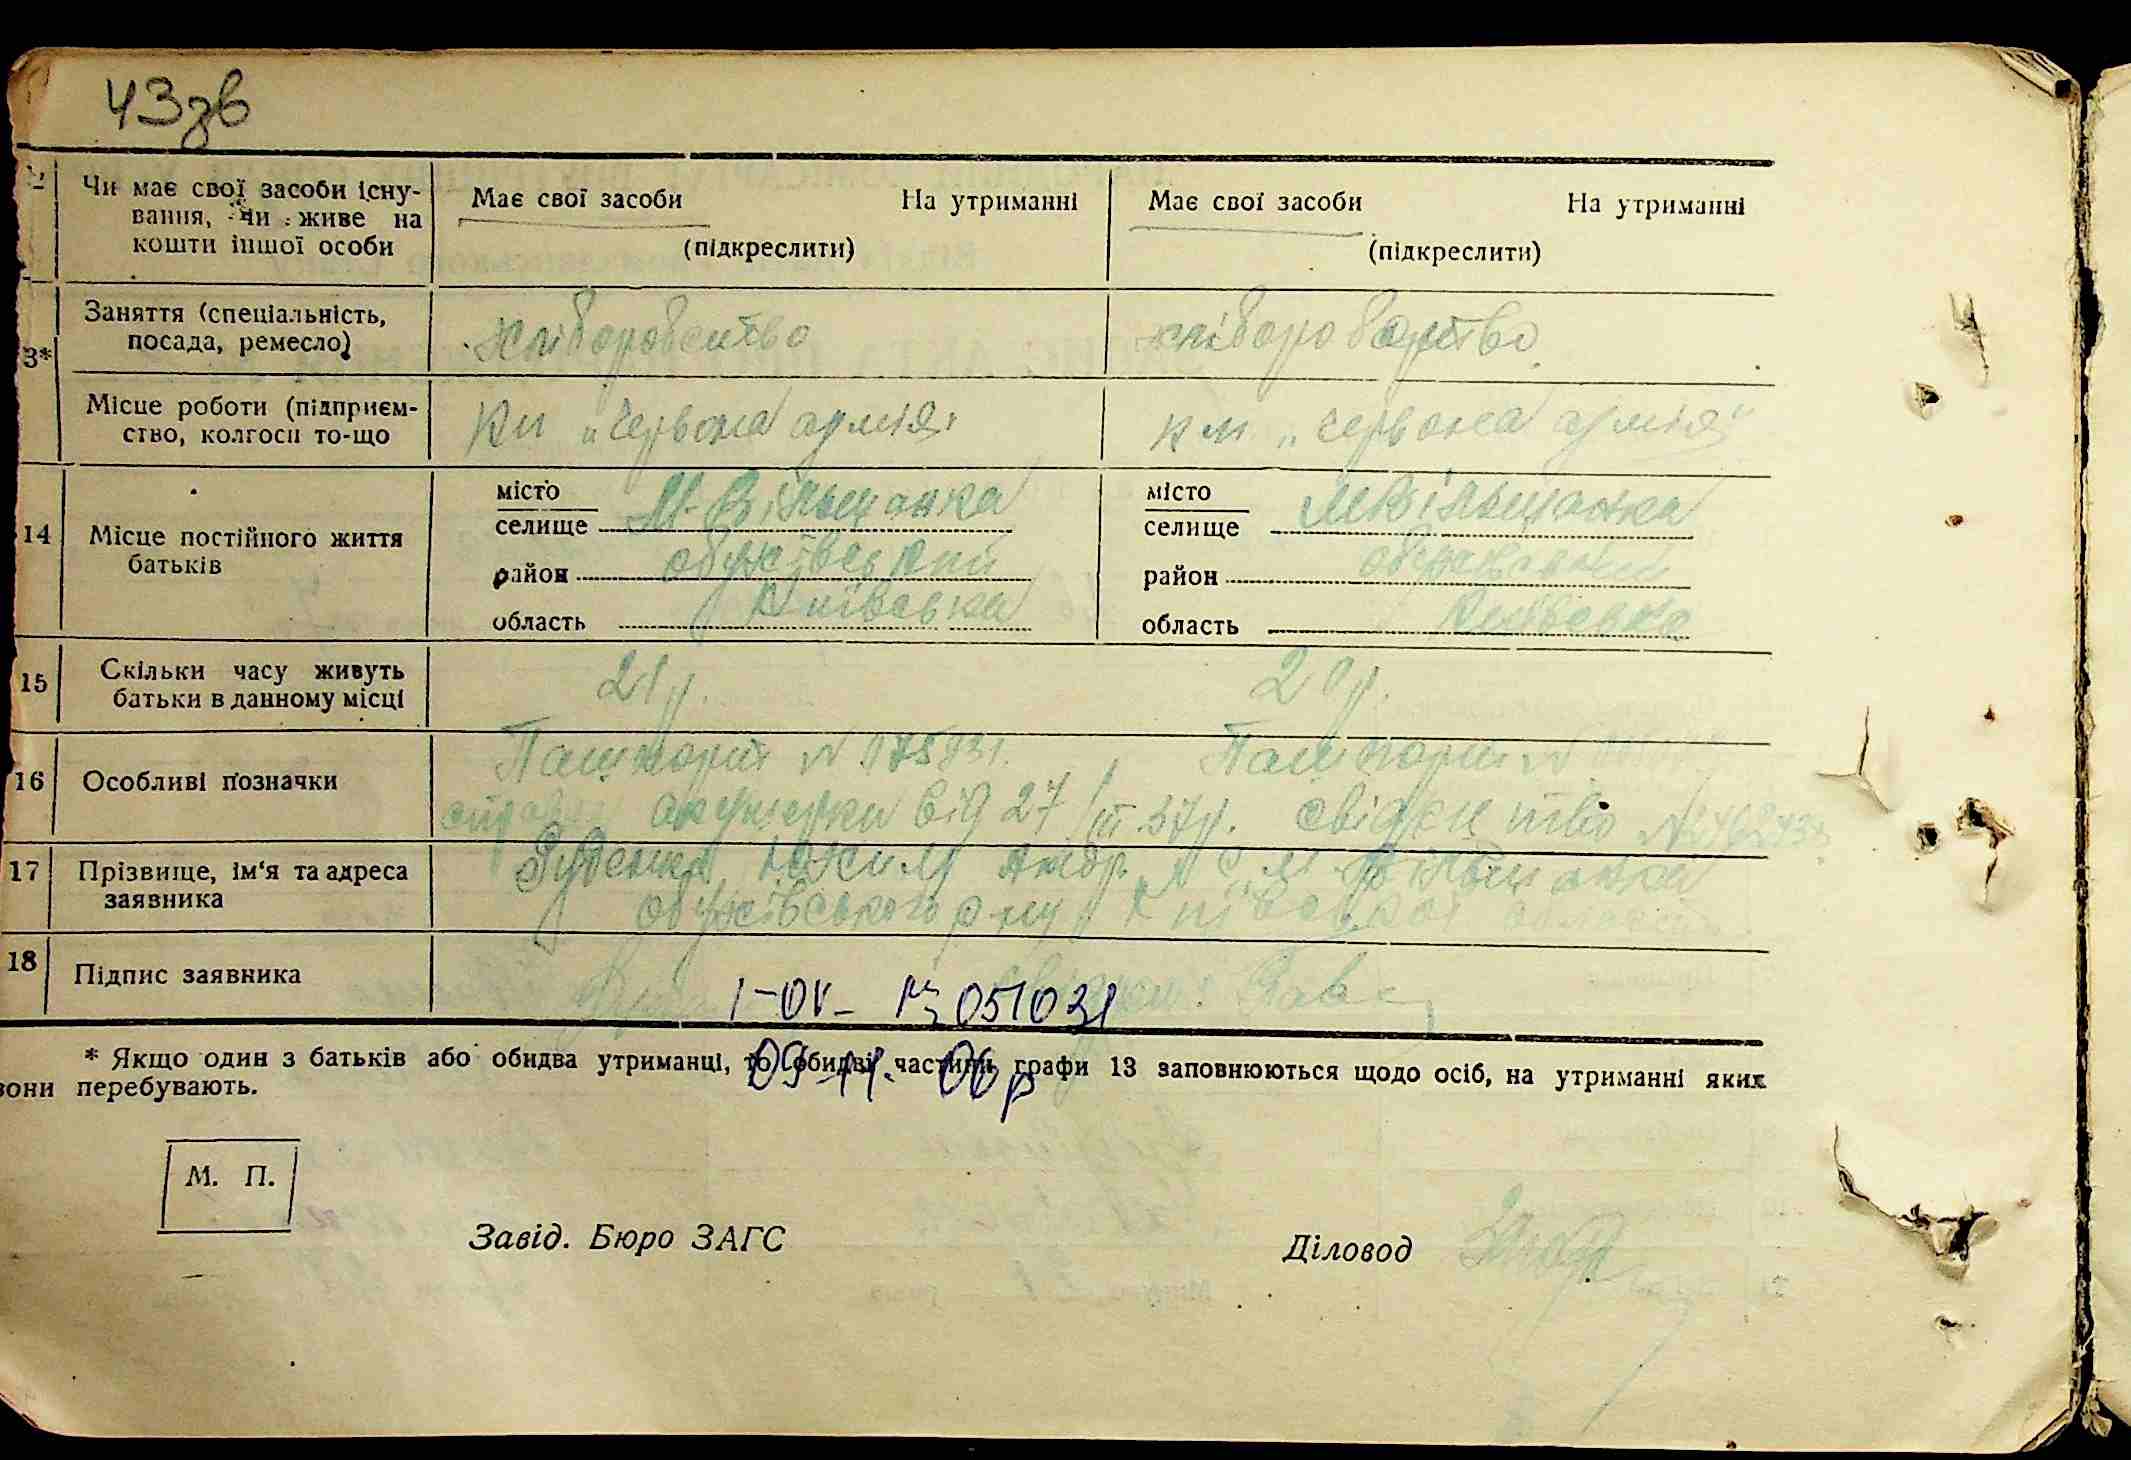 43зв
Чи має свої засоби існу-
вання, чи живе на
кошти іншої особи
Має свої засоби На утриманні
(підкреслити)
Має свої засоби На утриманні
(підкреслити)
3*
Заняття (спеціальність,
посада, ремесло)
хліборобство
хліборобство
Місце роботи (підприєм-
ство, колгосп то-що
Км „Червона армія"
км „Червона армія"
14
Місце постійного життя
батьків
місто
селище М-Вільшанка
район обухівський
область Київська
місто
селище МВільшанка
район обухівський
область Київська
15
Скільки часу живуть
батьки в данному місці
21 р.
20 р.
16
Особливі позначки
Пашпорт N
Пашпорт N
акушерки від 27/III 37р. свідоцтво
17
Прізвище, ім'я та адреса
заявника
М Вільшанка
обухівського р-ну Київської області
18
Підпис заявника
І-ОК- № 051031
* Якщо один з батьків або обидва утриманці, то обидві частини графи 13 заповнюються щодо осіб, на утриманні яких
вони перебувають.
06р
М. П.
Завід. Бюро ЗАГС
Діловод